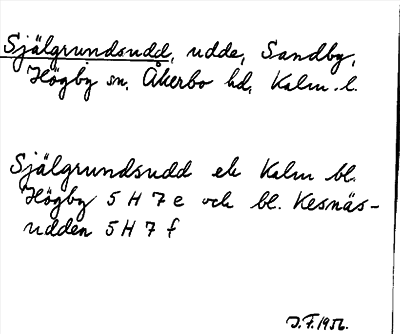 Själgrundsudd, udde, Sandby,
Högby sn, Åkerbo hd, Kalm. l.
Själgrundsudd ek Kalm bl.
Högby 5 H 7 e och bl. Kesnäs-
udden 5 H 7 f
J.F. 1956.